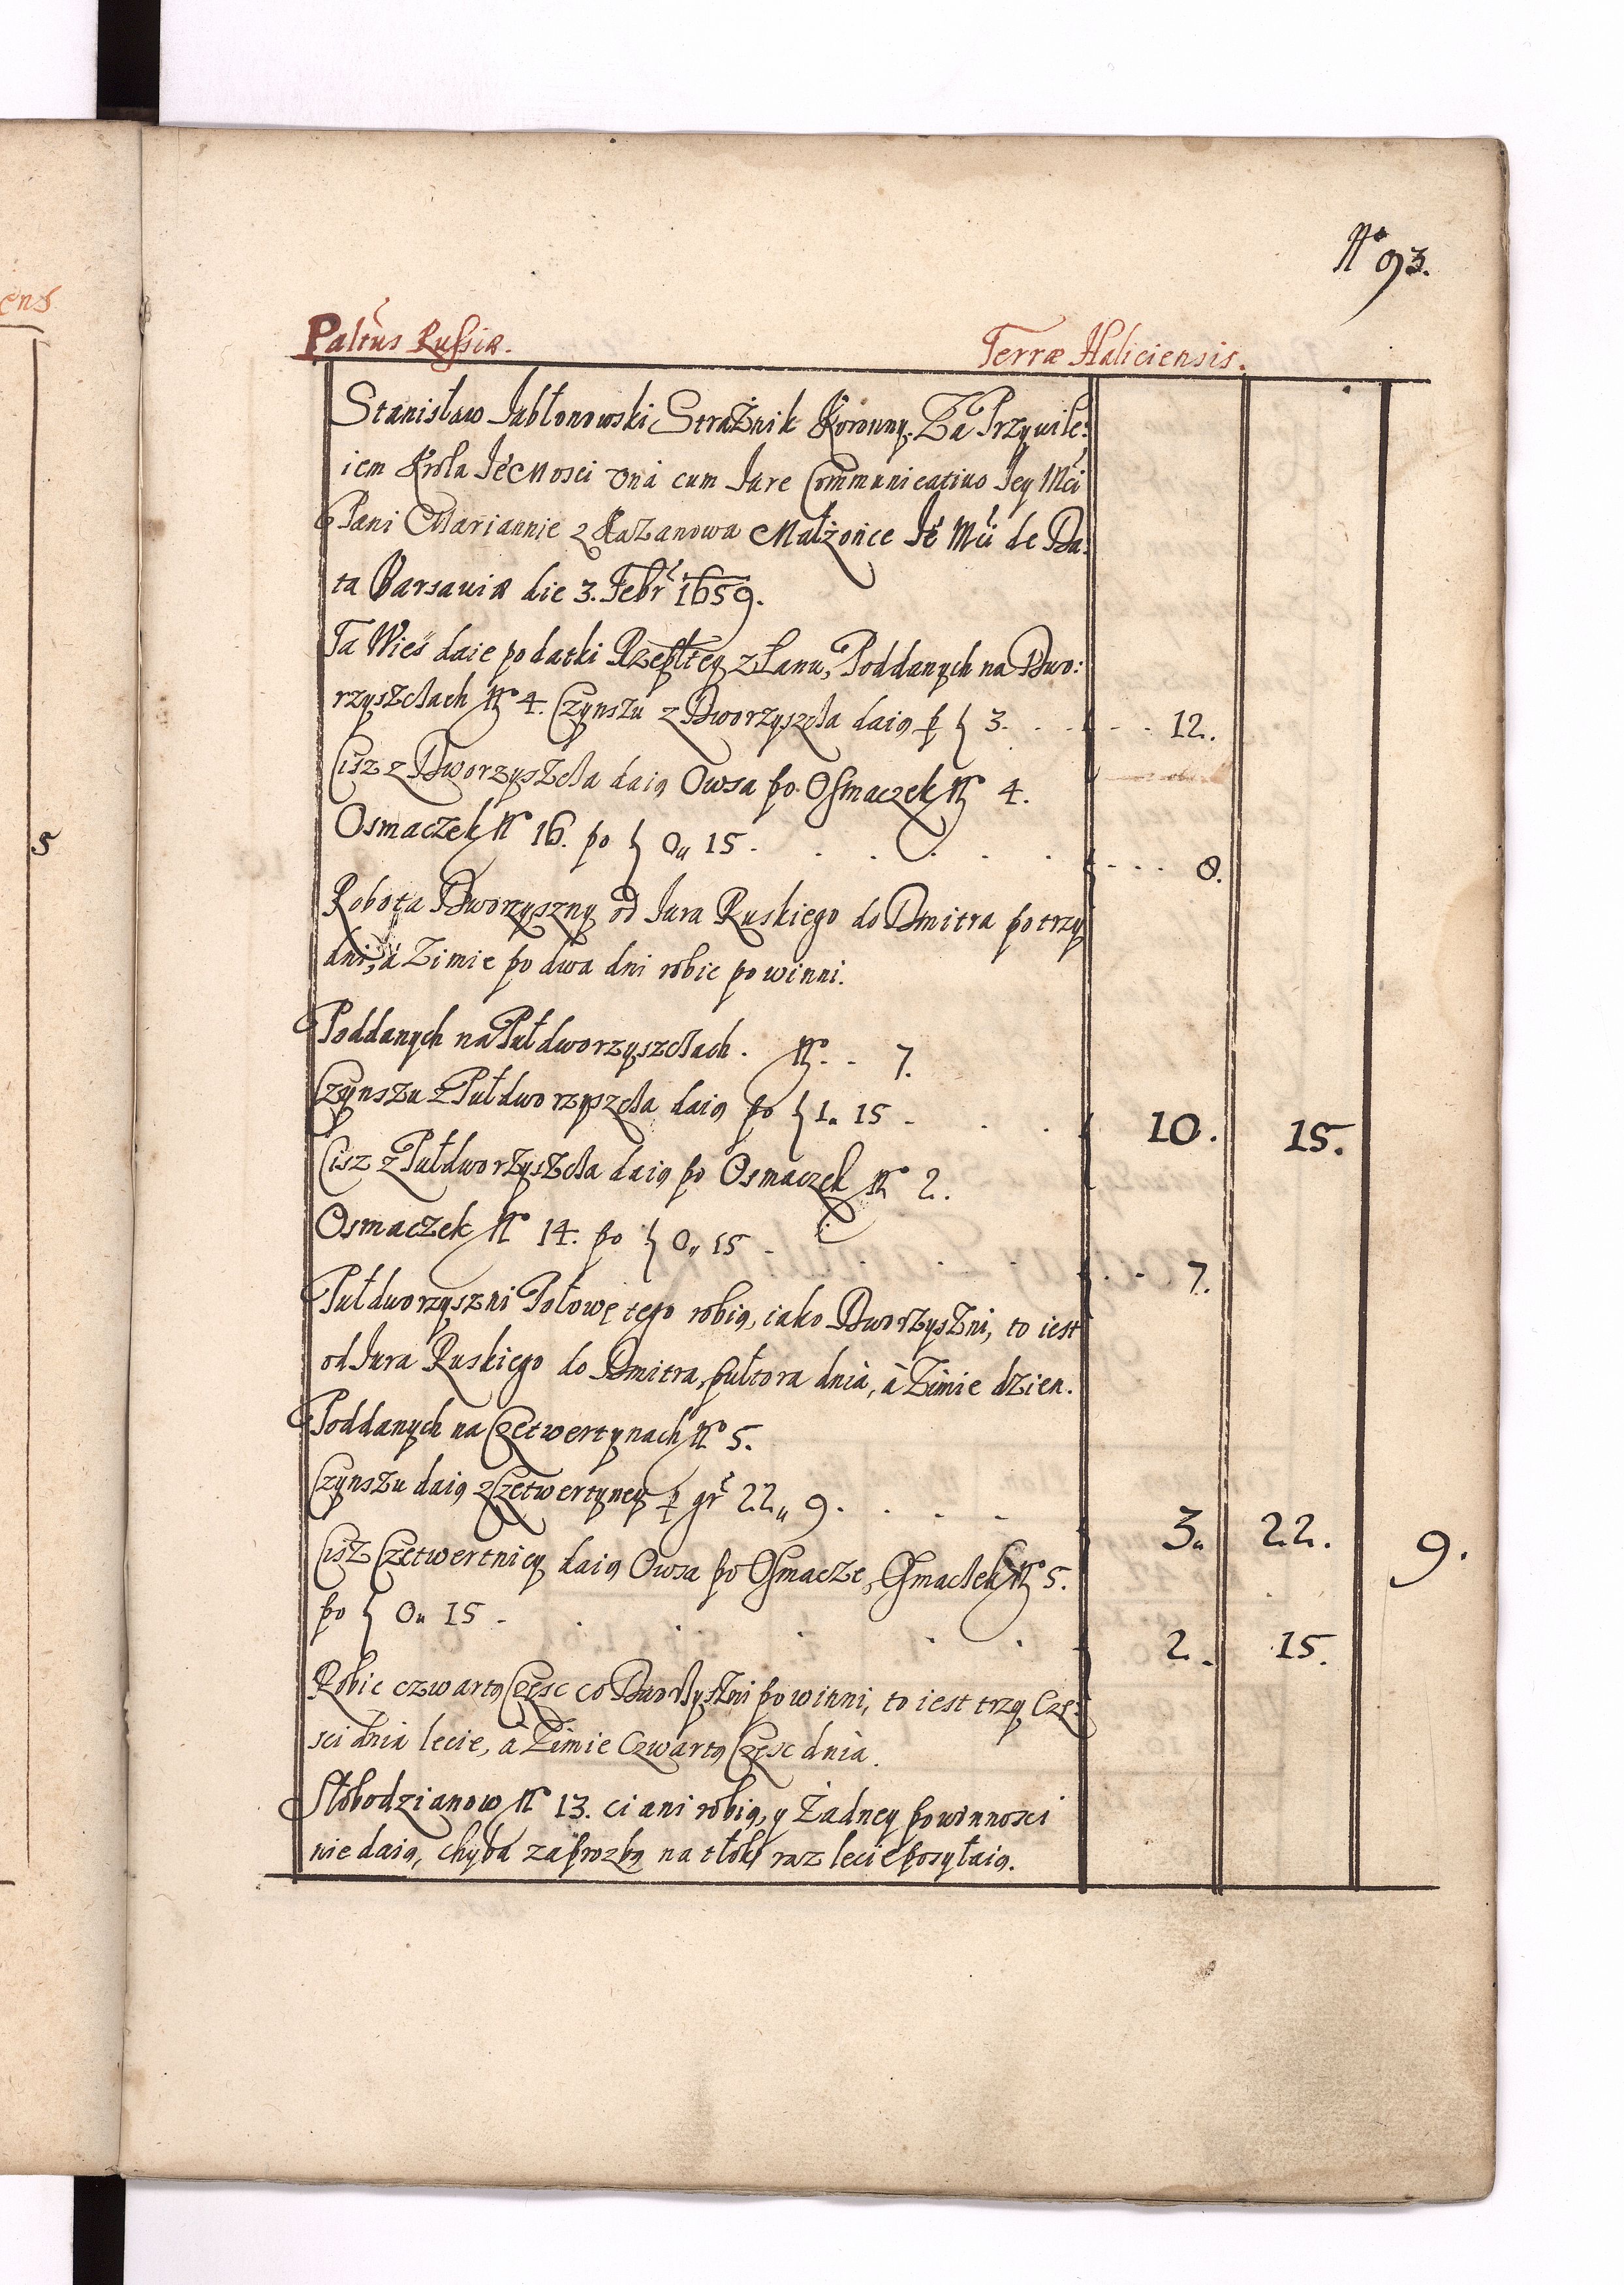 ens
5
No 93.
Paltus Russiæ. Terræ Haliciensis.
Stanisław Jabłonowski Strażnik Koronny. Za Przywile:
iem Krola Jeo Mosci una cum Jure Communicativo Jey Mci
Pani Mariannie z Kazanowa Małżonce Jeo Mci de Da:
ta Varsaviæ die 3. Febr 1659.
Ta Wieś daie podatki Rzeplitey z Łanu, Poddanych na Dwo:
rzyszczach No 4. Czynszu z Dworzyszcza daią p } 3. 12.
Cisz z Dworzyszcza daią Owsa po Osmaczek No 4.
Osmaczek No 16. po } 0„ 15. 8.
Robota Dworzyszny od Jura Ruskiego do Dmitra po trzy
dni, à Zimie po dwa dni robic powinni.
Poddanych na Pułdworzyszczach. No 7.
Czynszu z Pułdworzyszcza daią po } 1„ 15 10. 15.
Cisz z Pułdworzyszcza daią po Osmaczek No 2.
Osmaczek No 14. po } 0„ 15 7.
Pułdworzyszni Połowę tego robią, iako Dworzyszni, to iest
od Jura Ruskiego do Dmitra, pułtora dnià, à Zimie dzien.
Poddanych na Czetwertynach No 5.
Czynszu daią z Czetwertyney p gr 22„ 9. 3„ 22. 9.
Cisz Czetwertnicy daią Owsa po Osmacze, Osmaczek No 5.
po } 0„ 15 2. 15.
Robic czwartą Częsc co Dworzyszni powinni, to iest trzy Czę:
sci dnia lecie, à Zimie Czwartą Częsc dnià.
Słobodzianow No 13. ci ani robią, y Żadney powinnosci
nie daią, chyba za prozbą na tłokę raz lecie posyłaią.